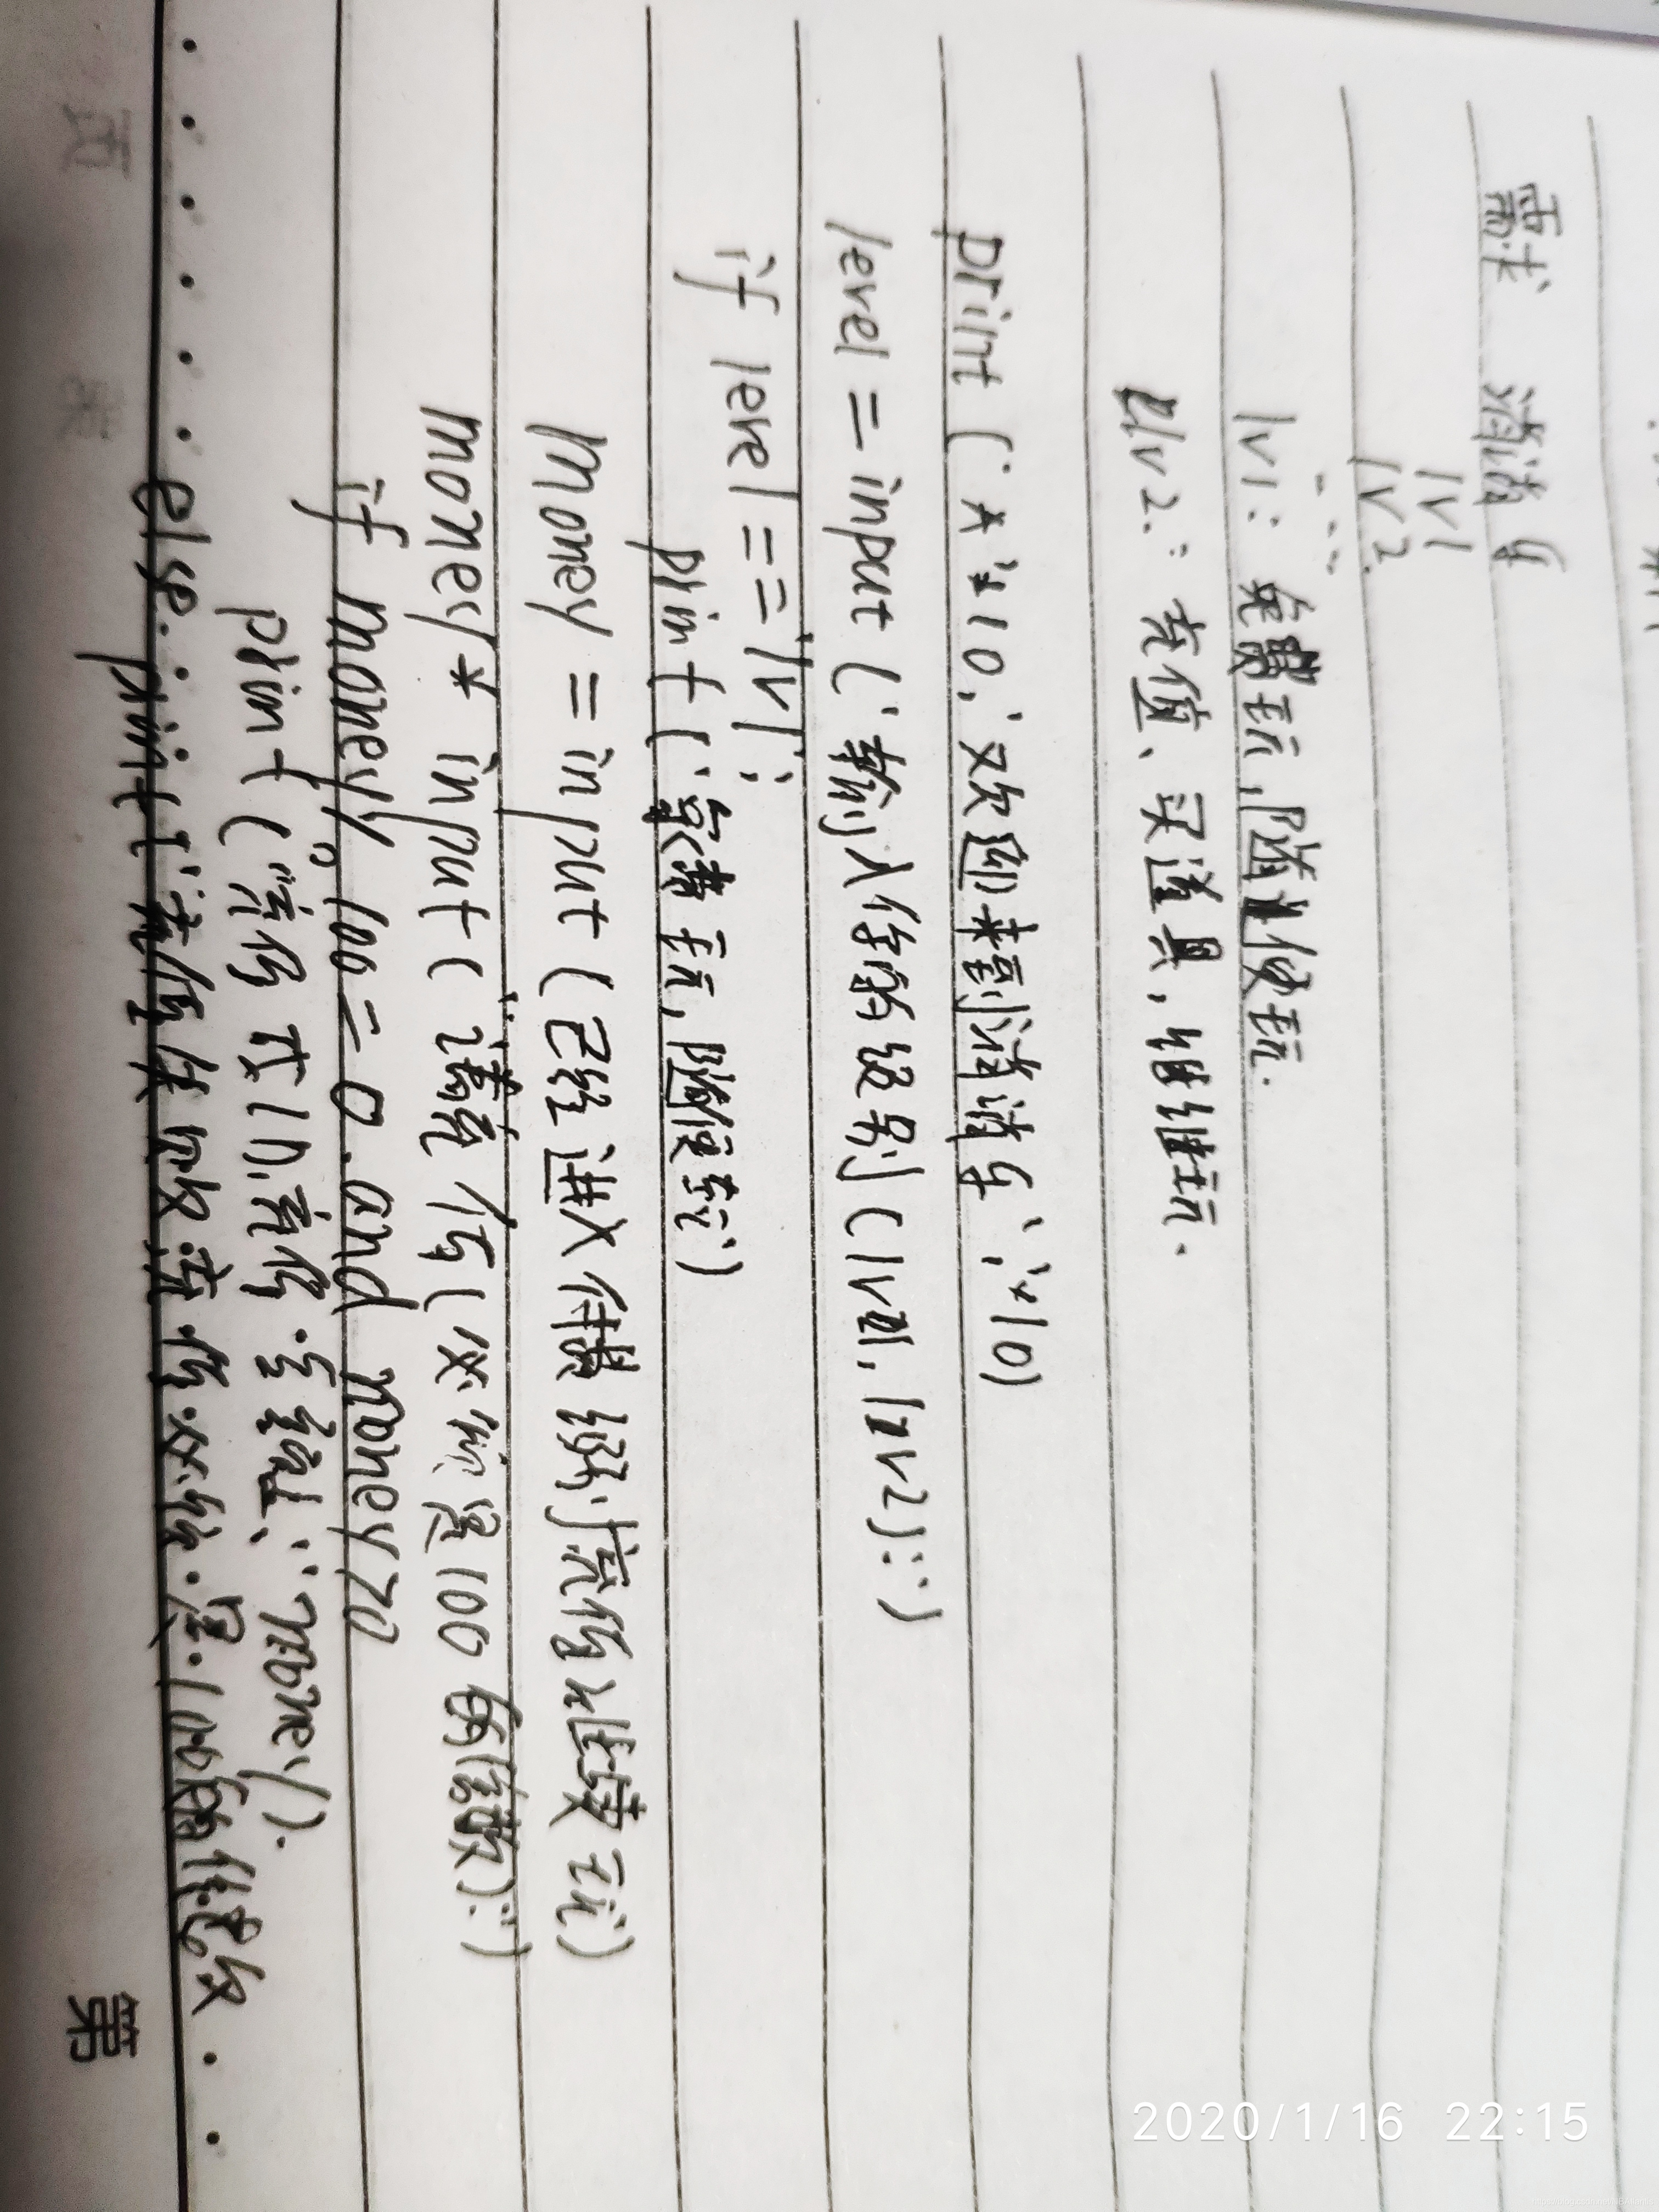 需求 消消乐
lv1
lv2
lv1: 免费玩,随便玩.
lv2: 充值、买道具,继续玩.
print ('*'*10,'欢迎来到消消乐','*'10)
level = input ('输入你的级别(lv1, lv2):')
if level == 'lv1':
print ('免费玩,随便玩')
money = input (已经进入 级别充值才继续玩)
money* input ("请 值(必须是100的倍数):")
if money % 100 == 0 and money>0
print ("充值成功,充值 金额:",money).
else: print: 充值失败 充值必须是100的倍数
页 第
2020/1/16 22:15